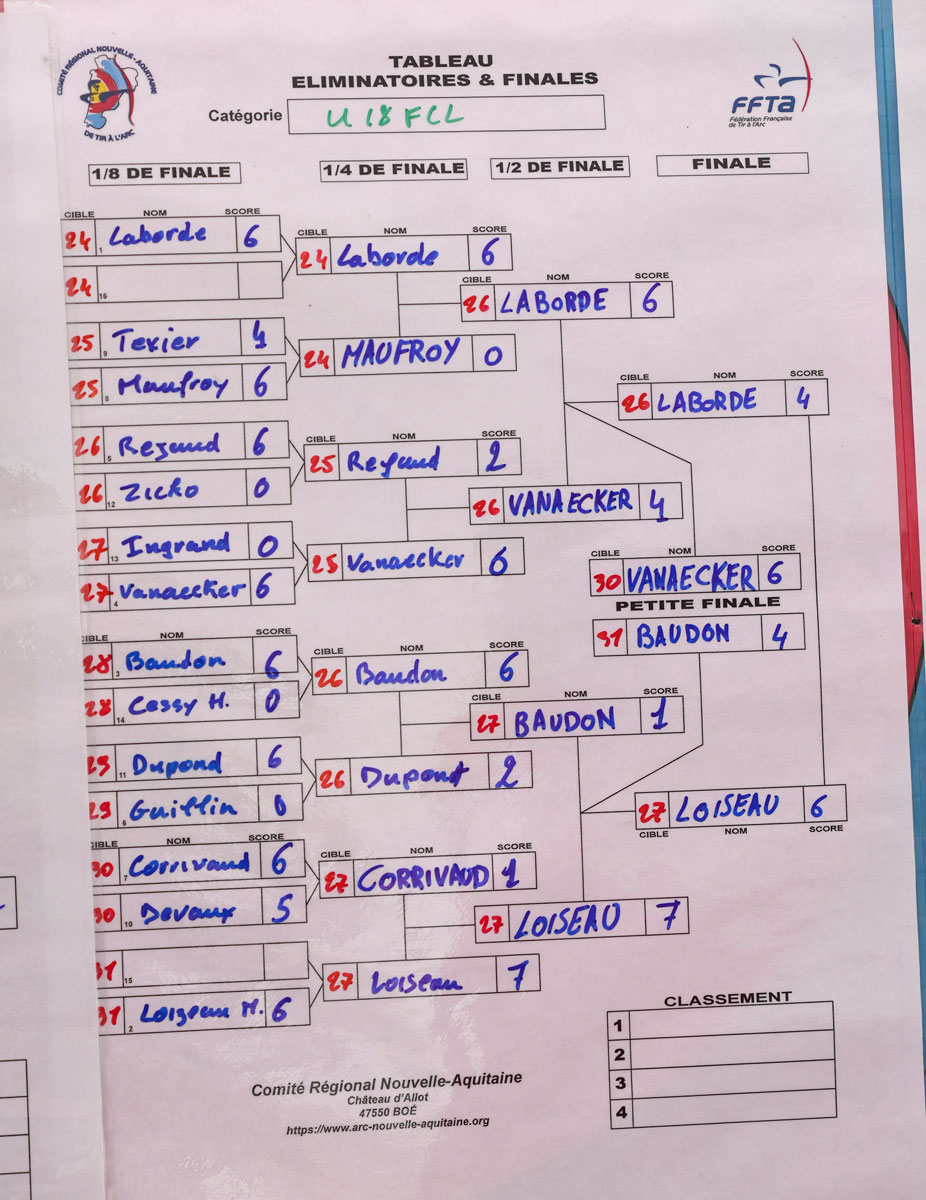 COMITÉ RÉGIONAL NOUVELLE-AQUITAINE
DE TIR À L'ARC
TABLEAU
ELIMINATOIRES & FINALES
Catégorie U18FCL
FFTA
Fédération Française
de Tir à l'Arc
1/8 DE FINALE
1/4 DE FINALE
1/2 DE FINALE
FINALE
CIBLE NOM SCORE
24 1 Laborde 6
24 16
25 9 Texier 4
25 8 Maufroy 6
26 5 Regaud 6
26 12 Zicko 0
27 13 Ingrand 0
27 4 Vanaecker 6
CIBLE NOM SCORE
28 3 Baudon 6
28 14 Cessy H. 0
29 11 Dupond 6
29 6 Guillin 0
CIBLE NOM SCORE
30 7 Corrivaud 6
30 10 Devaux 5
31 15
31 2 Loizeau M. 6
CIBLE NOM SCORE
24 Laborde 6
24 MAUFROY 0
CIBLE NOM SCORE
25 Regaud 2
25 Vanaecker 6
CIBLE NOM SCORE
26 Baudon 6
26 Dupont 2
CIBLE NOM SCORE
27 CORRIVAUD 1
27 Loiseau 7
CIBLE NOM SCORE
26 LABORDE 6
26 VANAECKER 4
CIBLE NOM SCORE
27 BAUDON 1
27 LOISEAU 7
CIBLE NOM SCORE
26 LABORDE 4
CIBLE NOM SCORE
30 VANAECKER 6
PETITE FINALE
31 BAUDON 4
27 LOISEAU 6
CIBLE NOM SCORE
CLASSEMENT
1
2
3
4
Comité Régional Nouvelle-Aquitaine
Château d'Allot
47550 BOÉ
https://www.arc-nouvelle-aquitaine.org